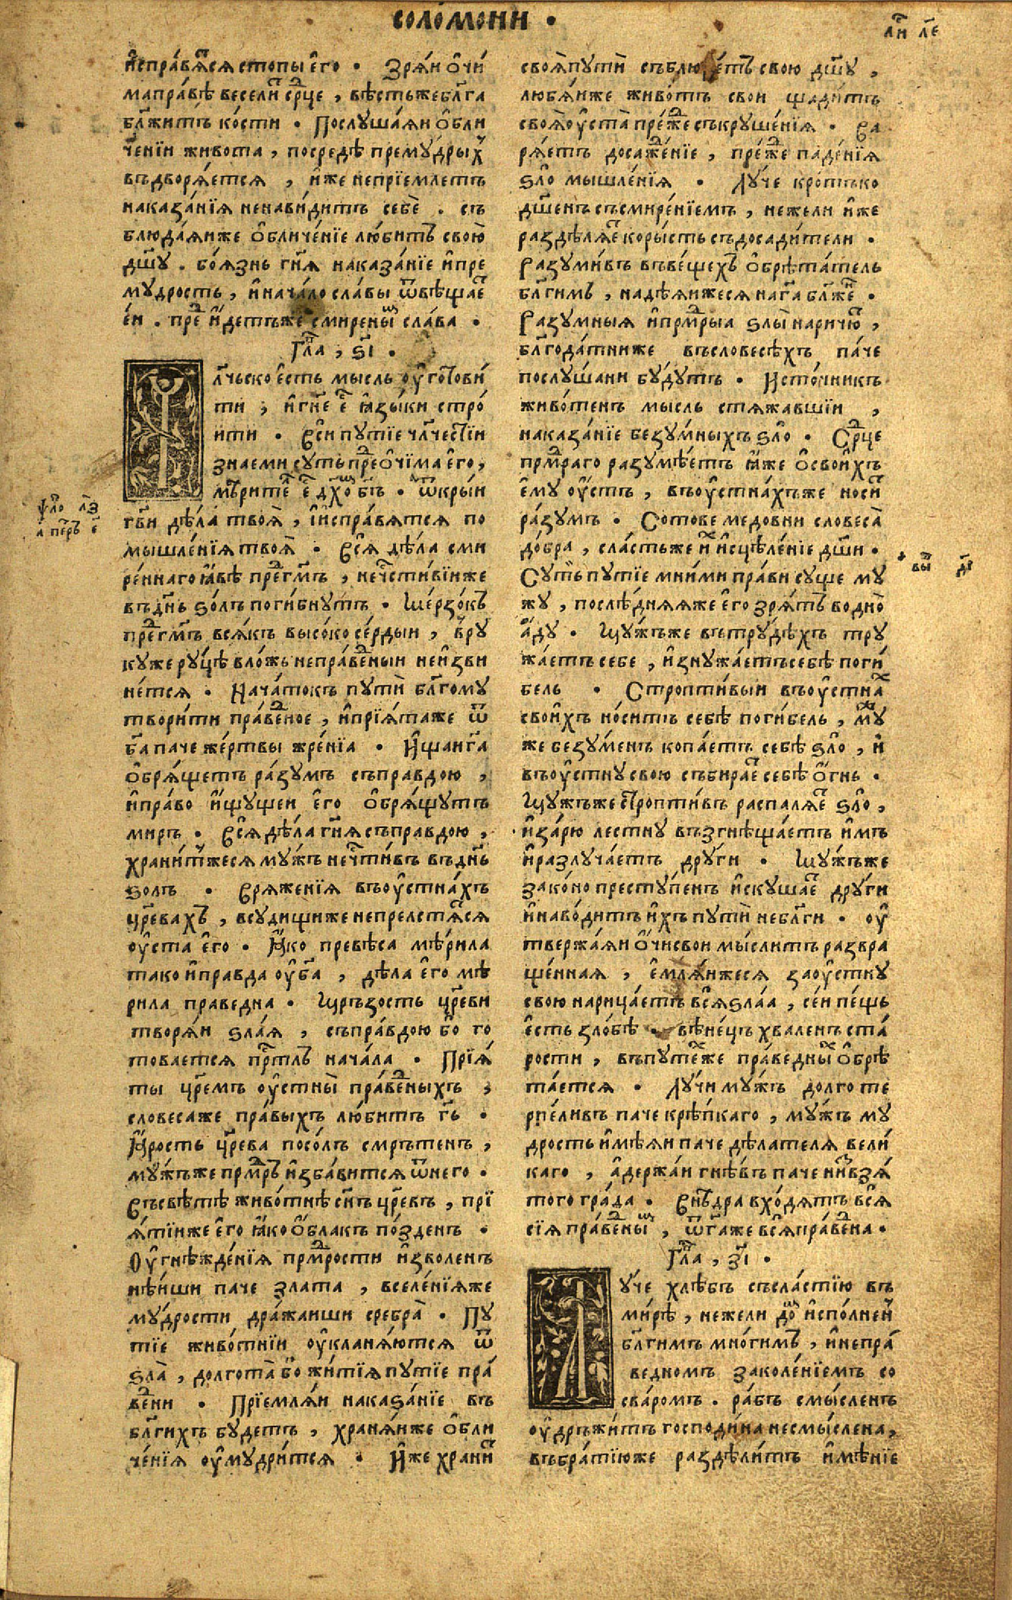 соло́мони ·
лⷭ҇и лⷷ
и҆спра́вѧⷮсѧ стопы̀ є҆го̀ · Зрѧ́и ѻ҆чи́
ма пра́вѣ весели́ⷮ срⷣце , вѣ́сть же бл҃га
бл҃жи́тъ ко́сти · Послꙋ́шаѧи ѻ҆бли
че́нїи живота̀ , посредѣ̀ премꙋ́дрыⷯ
въдворѧ́етсѧ , и҆́же непрїе́млетъ
наказа́нїѧ ненави́дитъ себѐ . съ
блюда́ѧи же ѻ҆бличе́нїе лю́битъ свою̀
дш҃ꙋ . боѧ́знь гн҃ѧ наказа́нїе и҆ пре
мꙋ́дрость , и҆ нача́ло сла́вы ѿвѣща́еⷮ
є҆́и . преⷣ и҆́детъ же смире́ныⷨ сла́ва ·
Гла҃ , ѕ҃і ·
л҃чьско є҆́сть мысль оу҆гото́ви
ти , и҆ гн҃е єⷭ҇ ѧ҆зы́ки стро́
ити · Всѝ пꙋтїе чл҃честїи
знаеми сꙋ́ть преⷣ ѻ҆чи́ма є҆го̀ ,
мѣ́рителⷧ҇ єⷭ҇ дх҃оⷨ бг҃ъ · ѿкры́и
гв҃и дѣ́ла твоѧ̀ , и҆ и҆спра́вѧтсѧ по
мышле́нїѧ твоѧ̀ · Всѧ̀ дѣ́ла сми
ре́ннаго ꙗ҆́вѣ преⷣ гм҃ъ , нечⷭ҇ти́вїи же
въ дн҃ь ѕо́лъ поги́бнꙋтъ · Ме́рзокъ
преⷣ гм҃ъ всѧ́къ высокосе́рдыи , в рꙋ
кꙋ же рꙋ́цѣ вло́жь непра́веⷣныи неи́зви
нѧ́етсѧ · Нача́токъ пꙋтѝ бл҃гомꙋ
твори́ти пра́веⷣное , и҆ прїѧ́та же ѿ
бг҃а паче же́ртвы жре́нїа · И҆щаи гд҃а
ѻ҆брѧ́щетъ ра́зꙋмъ съ пра́вдою ,
и҆ пра́во и҆́щꙋщеи є҆го̀ ѻ҆брѧ́щꙋтъ
миръ · Всѧ̀ дѣ́ла гн҃ѧ съ пра́вдою ,
храни́тжесѧ мꙋ́жъ нечⷭ҇ти́въ въ дн҃ь
ѕолъ · Врѧже́нїѧ въ оу҆стна́хъ
цр҃евахъ , в сꙋди́щи же непрелстѧ́ⷮсѧ
оу҆ста̀ є҆го̀ · Ꙗ҆́ко превѣ́са мѣ́рила
тако и҆ пра́вда оу҆ бг҃а , дѣла є҆го̀ мѣ́
рила пра́ведна · Мръ́зость цр҃еви
творѧ́и ѕла́ѧ , съ пра́вдою бо го
то́ваетсѧ прⷭ҇то́лъ нача́ла · Прїѧ́
ты цр҃емъ оу҆стны̀ пра́веⷣныхъ ,
словеса́ же пра́выхъ лю́битъ гд҃ь ·
Ꙗ҆́рость цр҃ева посо́лъ смръ́тенъ ,
мꙋ́жъ же прмⷣръ и҆зба́витсѧ ѿ него ·
Въ свѣ́тѣ живо́тнѣ сн҃ъ цр҃евъ , прї
ѧ́тїи же є҆го̀ ꙗ҆́ко ѻ҆́блакъ по́зденъ ·
Оу҆гнѣжде́нїѧ прмⷣрости и҆зволе́н
нѣ́иши паче злата , вселе́нїѧ же
мꙋ́дрости дра́жаиши сребра̀ · Пꙋ
тїе живо́тнїи оу҆кланѧ́ютсѧ ѿ
ѕла̀ , долгота́ бо житїѧ пꙋтїе пра́
веⷣни · Прїе́млѧи наказа́нїе въ
бл҃ги́хъ бꙋ́детъ , хранѧ́и же ѻ҆бли
че́нїѧ оу҆мꙋдри́тсѧ · И҆́же храни́ⷮ
ѱⷧ҇ло л҃з
а҃ пеⷮръ є҃
своѧ̀ пꙋтѝ съблюде́тъ свою̀ дш҃ꙋ ,
любѧ́и же живо́тъ свои щади́тъ
своѧ̀ оу҆ста̀ пре́жⷣе съкрꙋше́нїѧ · Ва
рѧ́етъ досаже́нїе , пре́жⷣе паде́нїѧ
ѕло̀ мышле́нїѧ · Лꙋ́че кро́тъко
дш҃енъ съ смире́нїемъ , не́жели и҆́же
раздѣлѧ́еⷮ коры́сть съ досади́тели ·
Разꙋми́въ въ ве́щехъ ѻ҆брѣта́тель
бл҃ги́мъ , надѣ́ѧи же сѧ на гд҃а бл҃же́ⷩ ·
Разꙋ́мныѧ и҆ прⷣмрыа ѕлы̀ нарича́ю ,
бл҃года́тни же въ словесѣ́хъ паче
послꙋ́шани бꙋ́дꙋтъ · И҆сто́чникъ
живо́тенъ мысль стѧжа́вшїи ,
наказа́нїе безꙋ́мныхъ ѕло̀ · Срⷣце
прⷣмраго разꙋмѣ́етъ ꙗ҆́же ѻ҆ свои́хъ
є҆мꙋ̀ оу҆стъ , въ оу҆стна́хъ же но́сиⷮ
ра́зꙋмъ · Со́тове медо́вни словеса̀
до́бра , сла́сть же и҆ⷯ и҆сцѣле́нїе дш҃и ·
Сꙋ́ть пꙋтїе мни́ми пра́ви сꙋще мꙋ́
жꙋ , послѣ́днѧѧ же є҆го зрѧ́тъ во дно̀
а҆́дꙋ · Мꙋ́жъ же въ трꙋдѣ́хъ трꙋ
жа́етъ себе , и҆знꙋжа́етъ себѣ̀ поги́
бель · Стропти́выи въ оу҆стнаⷯ
свои́хъ но́ситъ себѣ̀ поги́бель , мⷤꙋ
же безꙋ́менъ копа́етъ себѣ̀ ѕло̀ , и҆
въ оу҆стнꙋ свою̀ събира́еⷮ себѣ̀ ѻ҆́гнь ·
Мꙋ́жъ же стропти́въ распалѧ́еⷮ ѕло̀ ,
и҆ зарю ле́стнꙋ възгнѣща́етъ и҆́мъ
и҆ разлꙋча́етъ дрꙋ́ги · Мꙋ́жъ же
законопрестꙋ́пенъ и҆скꙋша́еⷮ дрꙋ́ги
и҆ наво́дитъ и҆́хъ пꙋтѝ небл҃ги · оу҆
твержа́ѧи ѻ҆́чи свои мы́слитъ развра
ще́ннаѧ , є҆млѧ́и же сѧ за оу҆стнꙋ
свою нарица́етъ всѧ̀ ѕла́а , се́и пе́щь
є҆́сть зло́бѣ · вѣне́цъ хвале́нъ ста́
рости , въ пꙋте́ⷯ же пра́ведныⷯ ѻ҆брѣ
та́етсѧ · Лꙋ́чи мꙋ́жъ долготе
рпе́ливъ паче крѣ́пкаго , мꙋ́жъ мꙋ́
дрость и҆мѣ́ѧи паче дѣ́лателѧ вели́
каго , а҆держа́и гнѣ́въ паче и҆́ⷨ взѧ́
того гра́да · Внѣ́дра вхо́дѧтъ всѧ̀
сїѧ пра́веⷣныⷨ , ѿ гд҃а же всѧ̀ пра́веⷣна ·
вы́ⷲ д҃і
Гла҃ , з҃і ·
ꙋче хлѣ́бъ съ сла́стїю въ
ми́рѣ , нежели доⷨ и҆спо́лненⷩ
бл҃ги́мъ мно́гимъ , и҆ непра́
ведномъ заколе́нїемъ со
сва́ромъ . ра́бъ смы́сленъ
оу҆дръжи́тъ господи́на несмы́слена ,
въ бра́тїю же раздѣли́тъ и҆мѣ́нїе